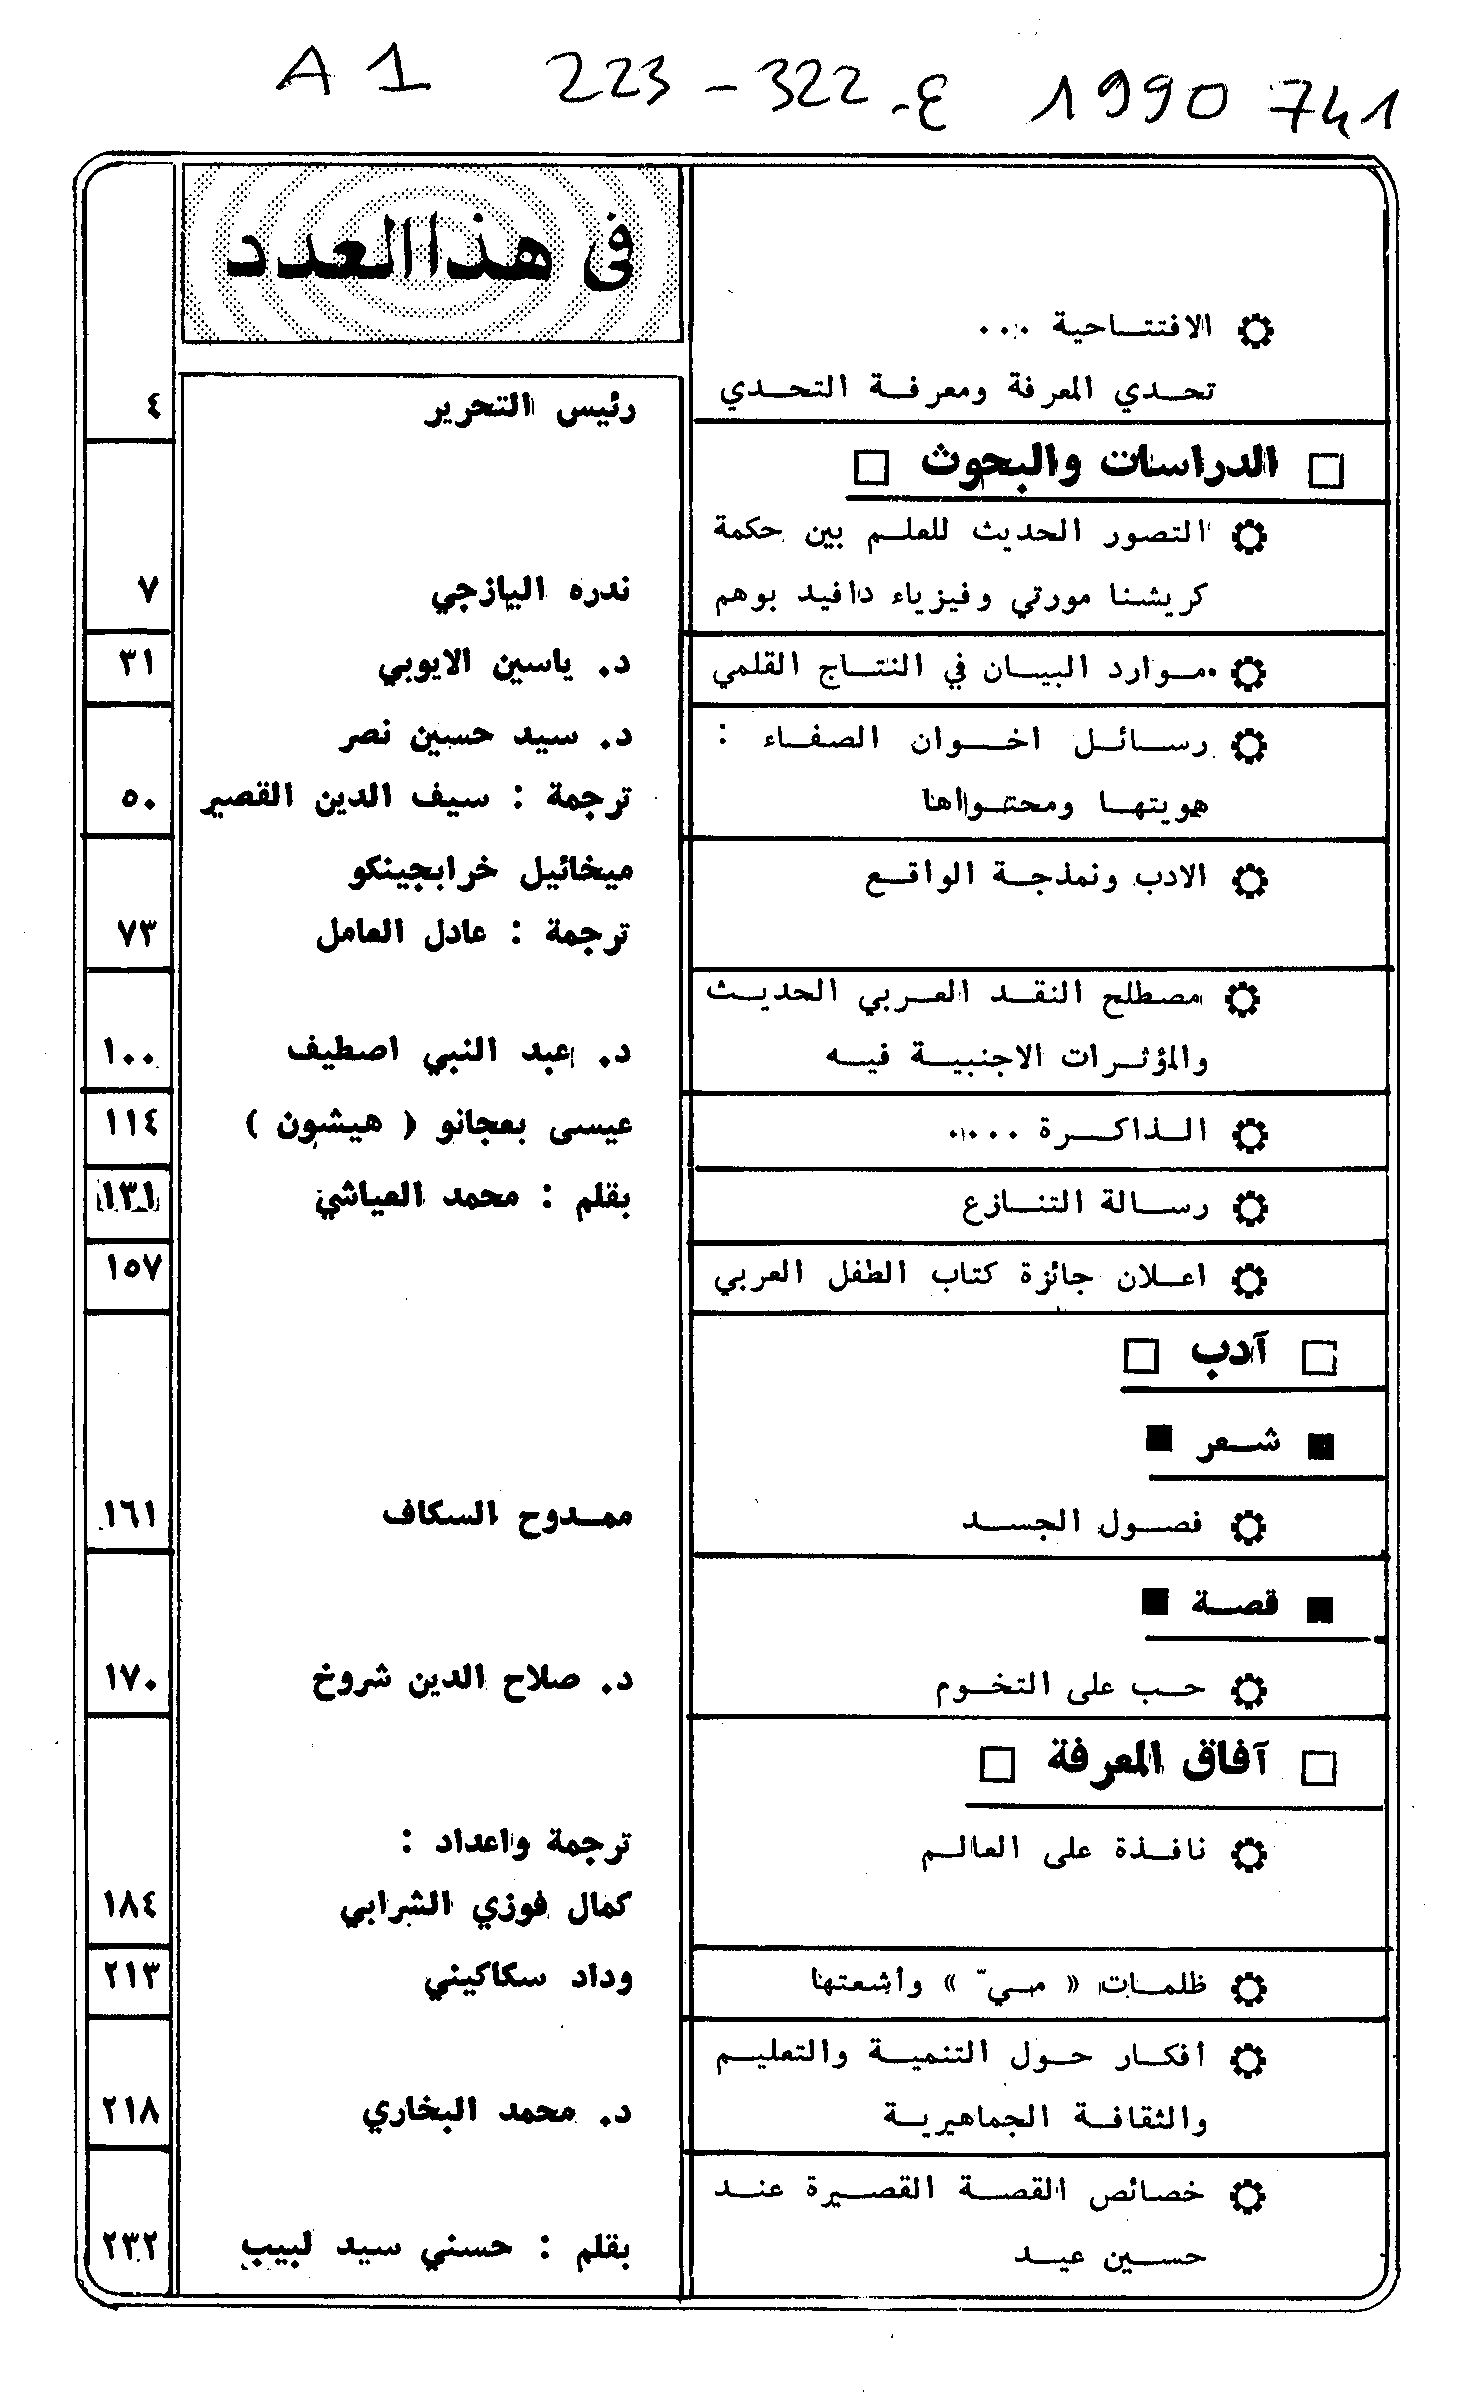 A1 223-322-ع 1990 741
في هذا العدد
الافتتاحية ...
تحدي المعرفة ومعرفة التحدي
رئيس التحرير
٤
□ الدراسات والبحوث □
التصور الحديث للعلم بين حكمة
كريشنا مورتي وفيزياء دافيد بوهم
ندره اليازجي
٧
موارد البيان في النتاج القلمي
د. ياسين الايوبي
٣١
رسائل اخوان الصفاء :
هويتها ومحتواها
د. سيد حسين نصر
ترجمة : سيف الدين القصير
٥٠
الادب ونمذجة الواقع
ميخائيل خرابجينكو
ترجمة : عادل العامل
٧٣
مصطلح النقد العربي الحديث
والمؤثرات الاجنبية فيه
د. عبد النبي اصطيف
١٠٠
الذاكرة ....
عيسى بعجانو ( هيشون )
١١٤
رسالة التنازع
بقلم : محمد العياشي
١٣١
اعلان جائزة كتاب الطفل العربي
١٥٧
□ آدب □
■ شعر ■
فصول الجسد
ممدوح السكاف
١٦١
■ قصة ■
حب على التخوم
د. صلاح الدين شروخ
١٧٠
□ آفاق المعرفة □
نافذة على العالم
ترجمة واعداد :
كمال فوزي الشرابي
١٨٤
ظلمات « ميّ » وأشعتها
وداد سكاكيني
٢١٣
افكار حول التنمية والتعليم
والثقافة الجماهيرية
د. محمد البخاري
٢١٨
خصائص القصة القصيرة عند
حسين عيد
بقلم : حسني سيد لبيب
٢٣٢